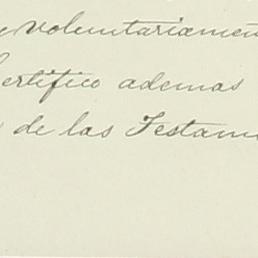 voluntariamen
Certifico ademas
de las Testam